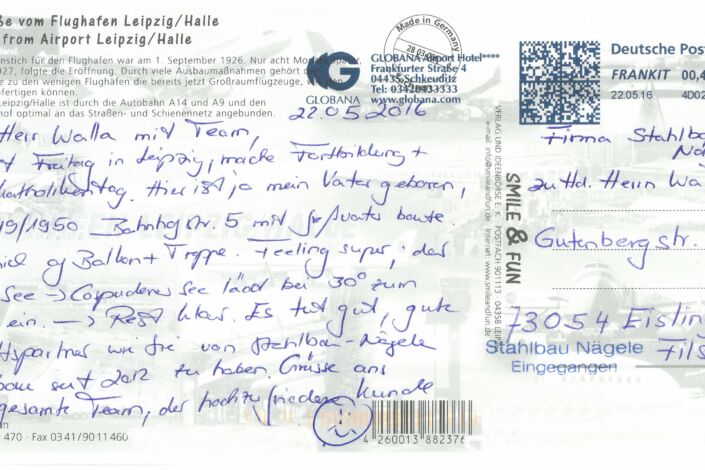 ße vom Flughafen Leipzig/Halle
from Airport Leipzig/Halle
land.
nstich für den Flughafen war am 1. September 1926. Nur acht Mo
927, folgte die Eröffnung. Durch viele Ausbaumaßnahmen gehört de
le zu den wenigen Flughäfen die bereits jetzt Großraumflugzeuge, v
bfertigen können.
Leipzig/Halle ist durch die Autobahn A14 und A9 und den
hof optimal an das Straßen- und Schienennetz angebunden.
Made in Germany
28 03
G
GLOBANA
GLOBANA Airport Hotel****
Frankfurter Straße 4
04435 Schkeuditz
Tel: 0342
www.globana.com
22.05.2016
Herr Walla mit Team,
Freitag in Leipzig, mache Fortbildung +
katholikentag. Hier ist ja mein Vater geboren,
19/1950 Bahnhofstr. 5 mit Großvater baute.
Balkon + Treppe. Feeling super, der
See → Cospudener See lädd bei 30° zum
ein. → Rest klar. Es tut gut, gute
tspartner wie Sie von Stahlbau-Nägele
bau seit 2012 zu haben. Grüsse ans
gesamte Team, der hochzufriedene Kunde
n
470 · Fax 03 41/90 11 460
4 260013 882376
VERLAG UND IDEENBÖRSE E. K. · POSTFACH 901113 · 04358 LEIPZIG
e-mail: info@smileandfun.de · Internet: www.smileandfun.de
SMILE & FUN
Deutsche Pos
FRANKIT 00,4
22.05.16 4D02
Firma Stahlba
Nä
zu Hd. Herrn Wa
Gutenbergstr.
73054 Eislin
Fils
Stahlbau Nägele
Eingegangen